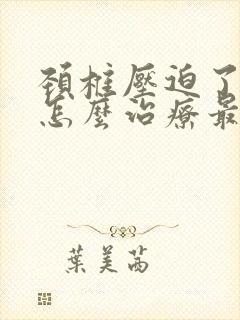 頚椎壓迫了
怎麼治療最
葉美茜